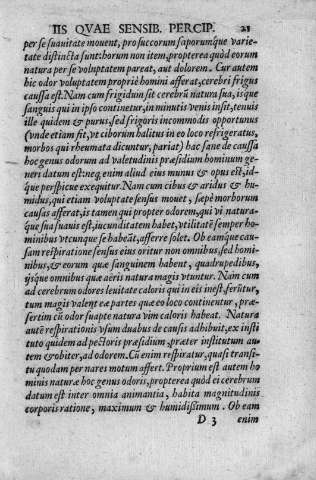 IIS QVAE SENSIB. PERCIP. 21
per se suauitate mouent, pro succorum saporumq́ue varie-
tate distincta sunt: horum non item, propterea quòd eorum
natura per se voluptatem pareat, aut dolorem. Cur autem
hic odor voluptatem propriè homini afferat, cerebri frigus
caussa est. Nam cum frigidum sit cerebrũ natura sua, isque
sanguis qui in ipso continetur, in minutis venis insit, tenuis
ille quidem & purus, sed frigoris incommodis opportunus
(vnde etiam fit, vt ciborum halitus in eo loco refrigeratus,
morbos qui rheumata dicuntur, pariat) hac sane de caussa
hoc genus odorum ad valetudinis præsidium hominum ge-
neri datum est: neq, enim aliud eius munus & opus est, id-
que perspicue exequitur. Nam cum cibus & aridus & hu-
midus, qui etiam voluptate sensus mouet, sæpè morborum
causas afferat, is tamen qui propter odorem, qui vi natura-
que sua suauis est, iucunditatem habet, vtilitatẽ semper ho-
minibus vtcunque se habeãt, afferre solet. Ob eamque cau-
sam respiratione sensus eius oritur non omnibus, sed homi-
nibus, & eorum quæ sanguinem habent, quadrupedibus,
ijsque omnibus quæ aëris natura magis vtuntur. Nam cum
ad cerebrum odores leuitate caloris qui in eis inest, ferũtur,
tum magis valent eæ partes quæ eo loco continentur, præ-
sertim cũ odor suapte natura vim caloris habeat. Natura
autẽ respirationis vsum duabus de causis adhibuit, ex insti
tuto quidem ad pectoris præsidium, præter institutum au-
tem & obiter, ad odorem. Cũ enim respiratur, quasi transi-
tu quodam per nares motum affert. Proprium est autem ho
minis naturæ hoc genus odoris, propterea quòd ei cerebrum
datum est inter omnia animantia, habita magnitudinis
corporis ratione, maximum & humidissimum. Ob eam
D 3 enim